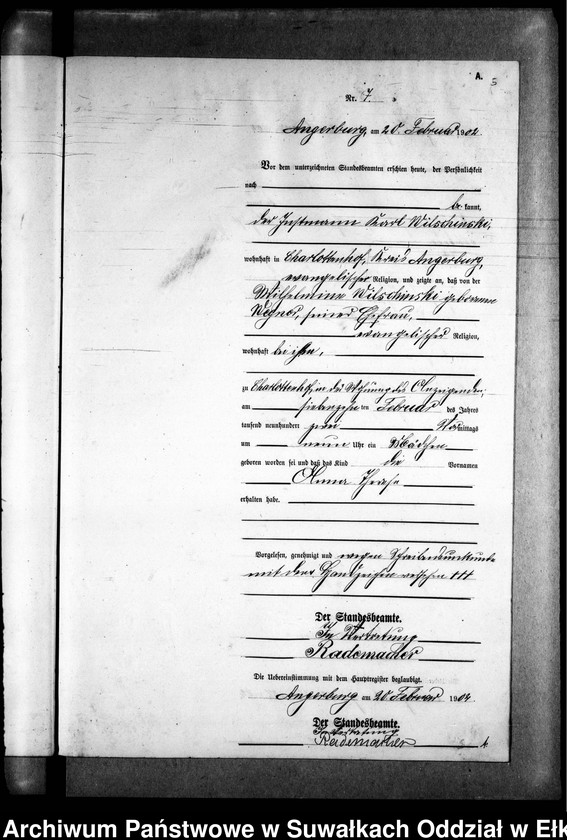 A.
Nr. 7
Angerburg, am 20. Februar 1902.
Vor dem unterzeichneten Standesbeamten erschien heute, der Persönlichkeit
nach
be kannt,
der Instmann Karl Wilschinski,
wohnhaft in Charlottenhof, Kreis Angerburg,
evangelischer Religion, und zeigte an, daß von der
Wilhelmine Wilschinski geborenen
seiner Ehefrau,
evangelischer Religion,
wohnhaft bei ihm,
zu Charlottenhof, in der Wohnung des Anzeigenden,
am siebenzehnten Februar des Jahres
tausend neunhundert zwei mittags
um neun Uhr ein Mädchen
geboren worden sei und daß das Kind die Vornamen
Anna Therese
erhalten habe.
Vorgelesen, genehmigt und wegen Schreibensunkunde
mit drei Handzeichen versehen +++
Der Standesbeamte.
In Vertretung
Rademacher
Die Uebereinstimmung mit dem Hauptregister beglaubigt.
Angerburg am 20. Februar 1902.
Der Standesbeamte.
In Vertretung
Rademacher
Archiwum Państwowe w Suwałkach Oddział w Ełk